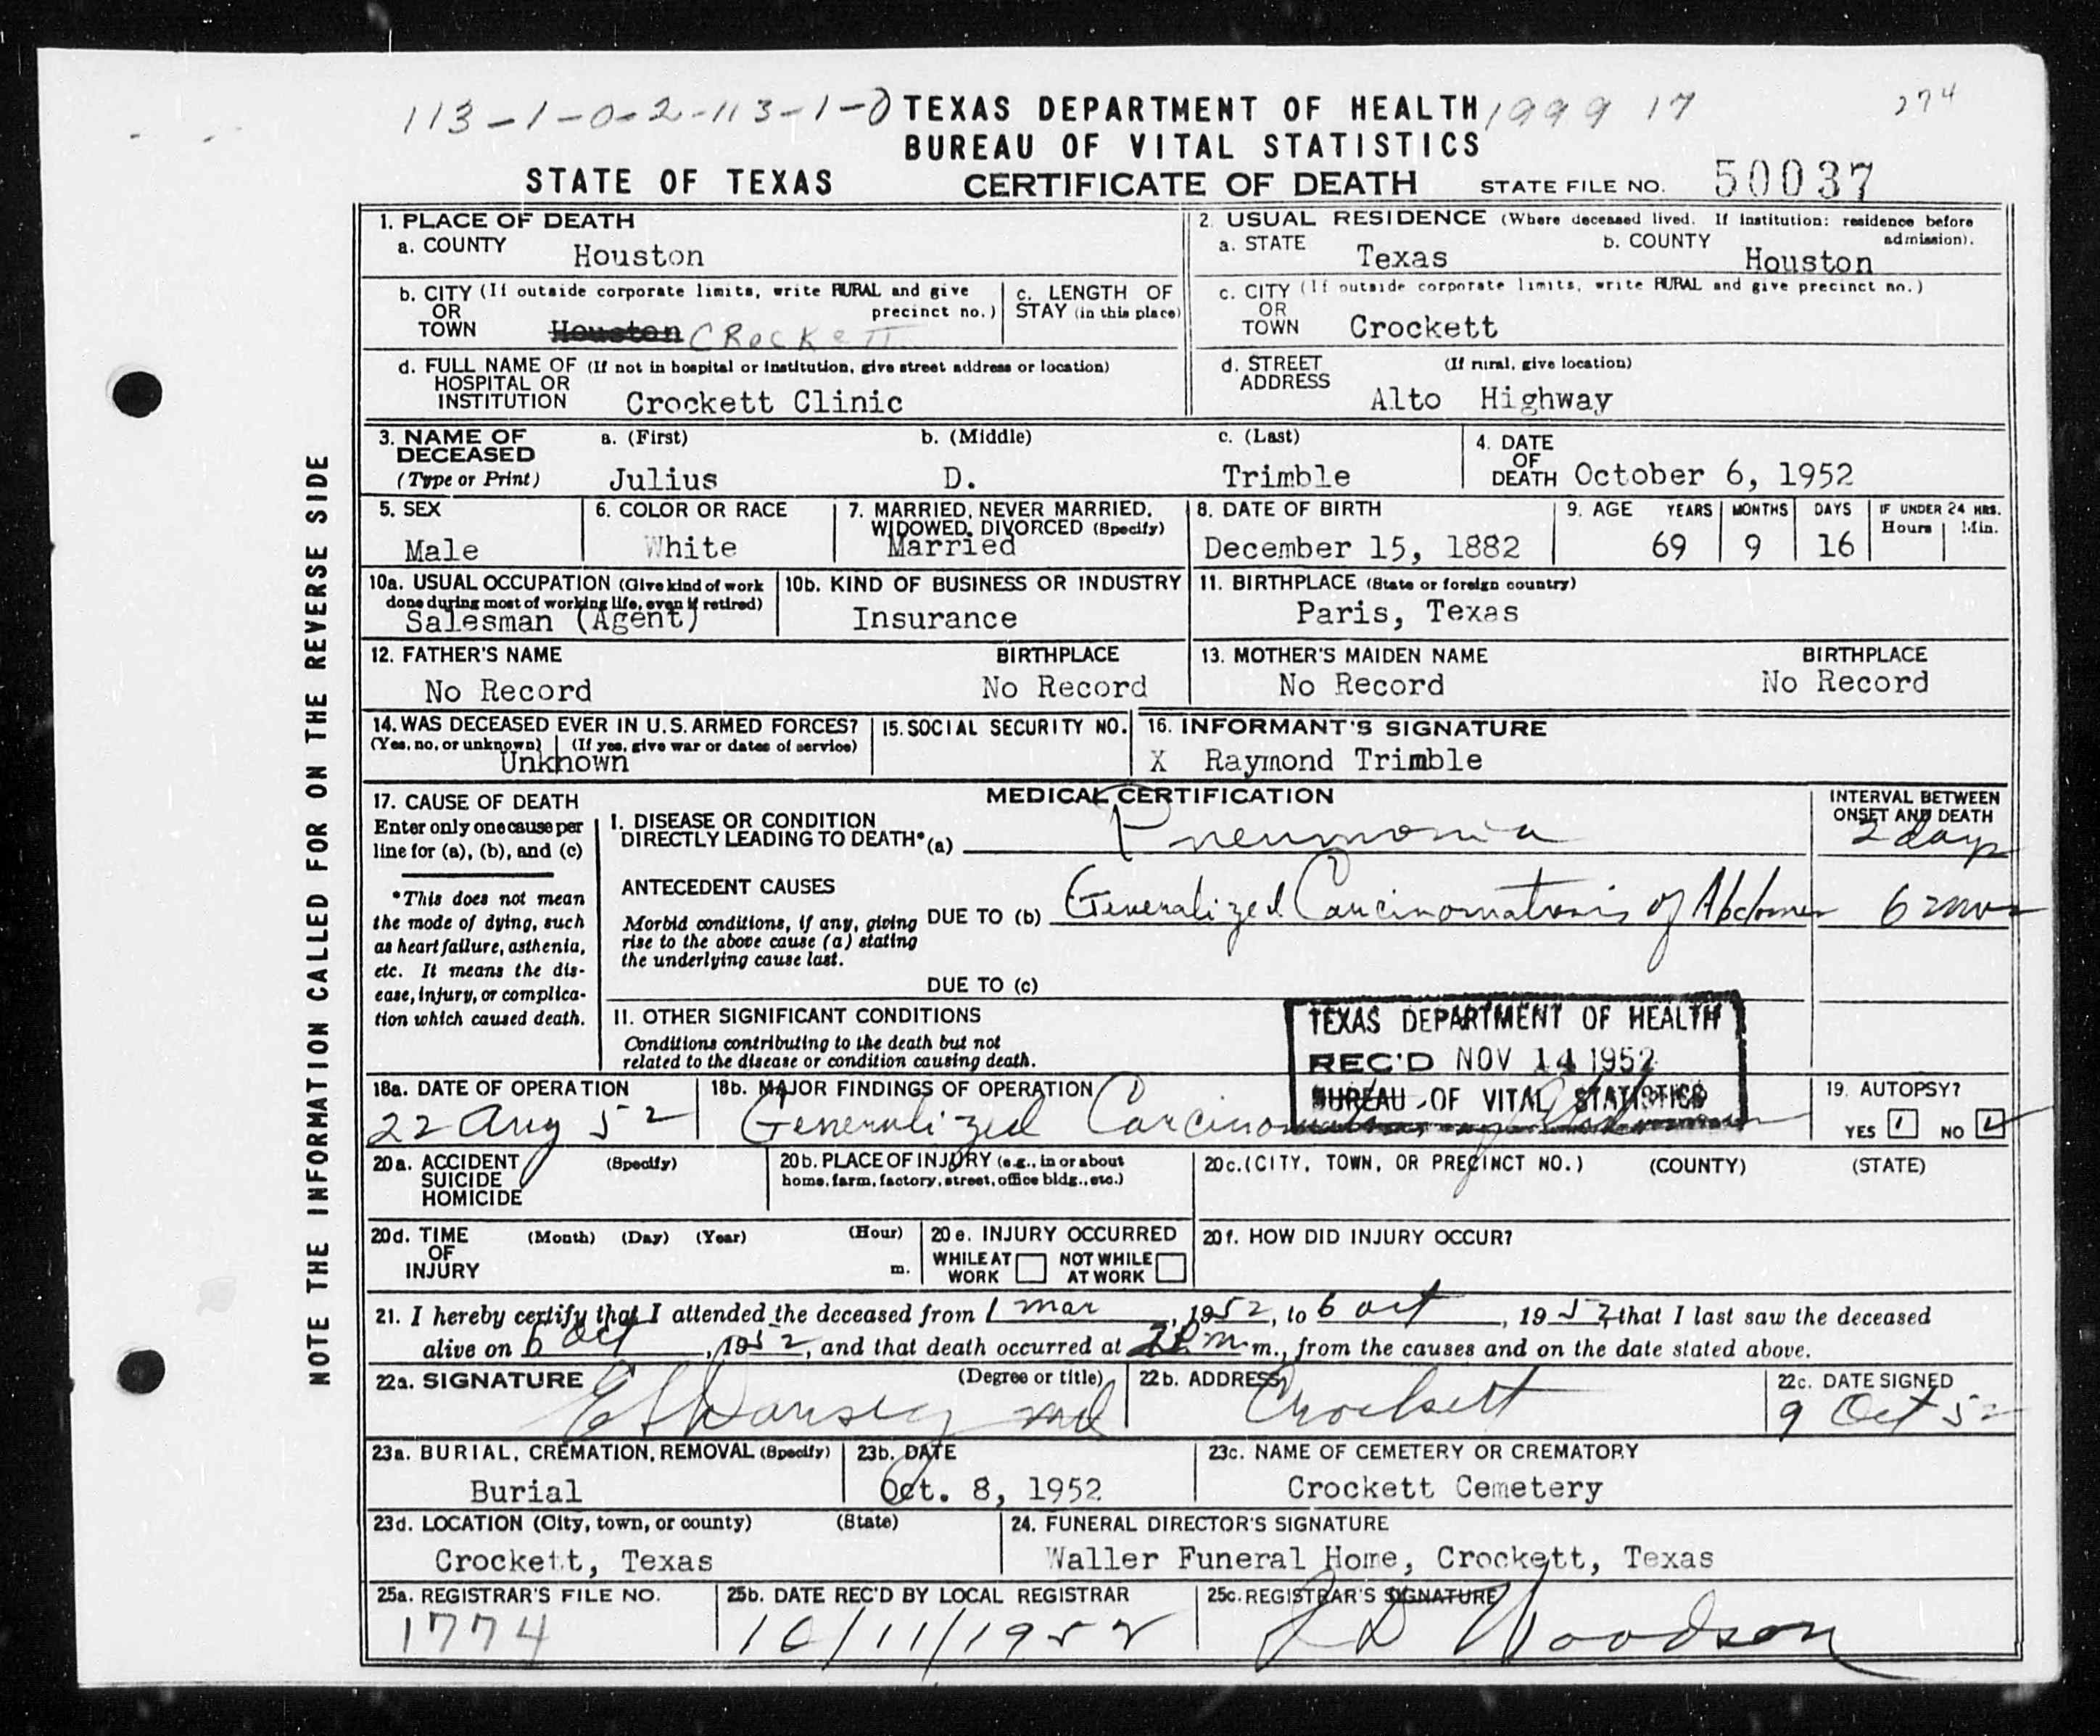 113-1-0-2-113-1-0 TEXAS DEPARTMENT OF HEALTH 1999 17 274
BUREAU OF VITAL STATISTICS
STATE OF TEXAS CERTIFICATE OF DEATH STATE FILE NO. 50037
1. PLACE OF DEATH
a. COUNTY Houston
2. USUAL RESIDENCE (Where deceased lived. If institution: residence before admission).
a. STATE Texas b. COUNTY Houston
b. CITY (If outside corporate limits, write RURAL and give precinct no.)
OR
TOWN Houston CRockett
c. LENGTH OF
STAY (in this place)
c. CITY (If outside corporate limits, write RURAL and give precinct no.)
OR
TOWN Crockett
d. FULL NAME OF (If not in hospital or institution, give street address or location)
HOSPITAL OR
INSTITUTION Crockett Clinic
d. STREET (If rural, give location)
ADDRESS Alto Highway
3. NAME OF DECEASED
(Type or Print)
a. (First) Julius
b. (Middle) D.
c. (Last) Trimble
4. DATE
OF
DEATH October 6, 1952
5. SEX
Male
6. COLOR OR RACE
White
7. MARRIED, NEVER MARRIED,
WIDOWED, DIVORCED (Specify)
Married
8. DATE OF BIRTH
December 15, 1882
9. AGE YEARS MONTHS DAYS IF UNDER 24 HRS.
Hours Min.
69 9 16
10a. USUAL OCCUPATION (Give kind of work
done during most of working life, even if retired)
Salesman (Agent)
10b. KIND OF BUSINESS OR INDUSTRY
Insurance
11. BIRTHPLACE (State or foreign country)
Paris, Texas
12. FATHER'S NAME BIRTHPLACE
No Record No Record
13. MOTHER'S MAIDEN NAME BIRTHPLACE
No Record No Record
14. WAS DECEASED EVER IN U.S. ARMED FORCES?
(Yes, no, or unknown) (If yes, give war or dates of service)
Unknown
15. SOCIAL SECURITY NO.
16. INFORMANT'S SIGNATURE
X Raymond Trimble
17. CAUSE OF DEATH
Enter only one cause per
line for (a), (b), and (c)
*This does not mean
the mode of dying, such
as heart failure, asthenia,
etc. It means the dis-
ease, injury, or complica-
tion which caused death.
MEDICAL CERTIFICATION
INTERVAL BETWEEN
ONSET AND DEATH
I. DISEASE OR CONDITION
DIRECTLY LEADING TO DEATH* (a) Pneumonia 2 days
ANTECEDENT CAUSES
Morbid conditions, if any, giving
rise to the above cause (a) stating
the underlying cause last.
DUE TO (b) Generalized Carcinomatosis of Abdomen 6 mos
DUE TO (c)
II. OTHER SIGNIFICANT CONDITIONS
Conditions contributing to the death but not
related to the disease or condition causing death.
TEXAS DEPARTMENT OF HEALTH
REC'D NOV 14 1952
BUREAU OF VITAL STATISTICS
18a. DATE OF OPERATION
22 Aug 52
18b. MAJOR FINDINGS OF OPERATION
Generalized
19. AUTOPSY?
YES NO
20a. ACCIDENT (Specify)
SUICIDE
HOMICIDE
20b. PLACE OF INJURY (e.g., in or about
home, farm, factory, street, office bldg., etc.)
20c. (CITY, TOWN, OR PRECINCT NO.) (COUNTY) (STATE)
20d. TIME (Month) (Day) (Year) (Hour)
OF
INJURY m.
20e. INJURY OCCURRED
WHILE AT WORK NOT WHILE AT WORK
20f. HOW DID INJURY OCCUR?
21. I hereby certify that I attended the deceased from 1 mar, 1952, to 6 oct, 1952, that I last saw the deceased
alive on 6 Oct, 1952, and that death occurred at m., from the causes and on the date stated above.
22a. SIGNATURE (Degree or title)
md
22b. ADDRESS
Crockett
22c. DATE SIGNED
9 Oct 52
23a. BURIAL, CREMATION, REMOVAL (Specify)
Burial
23b. DATE
Oct. 8, 1952
23c. NAME OF CEMETERY OR CREMATORY
Crockett Cemetery
23d. LOCATION (City, town, or county) (State)
Crockett, Texas
24. FUNERAL DIRECTOR'S SIGNATURE
Waller Funeral Home, Crockett, Texas
25a. REGISTRAR'S FILE NO.
1774
25b. DATE REC'D BY LOCAL REGISTRAR
10/11/1952
25c. REGISTRAR'S SIGNATURE
Woodson
NOTE THE INFORMATION CALLED FOR ON THE REVERSE SIDE